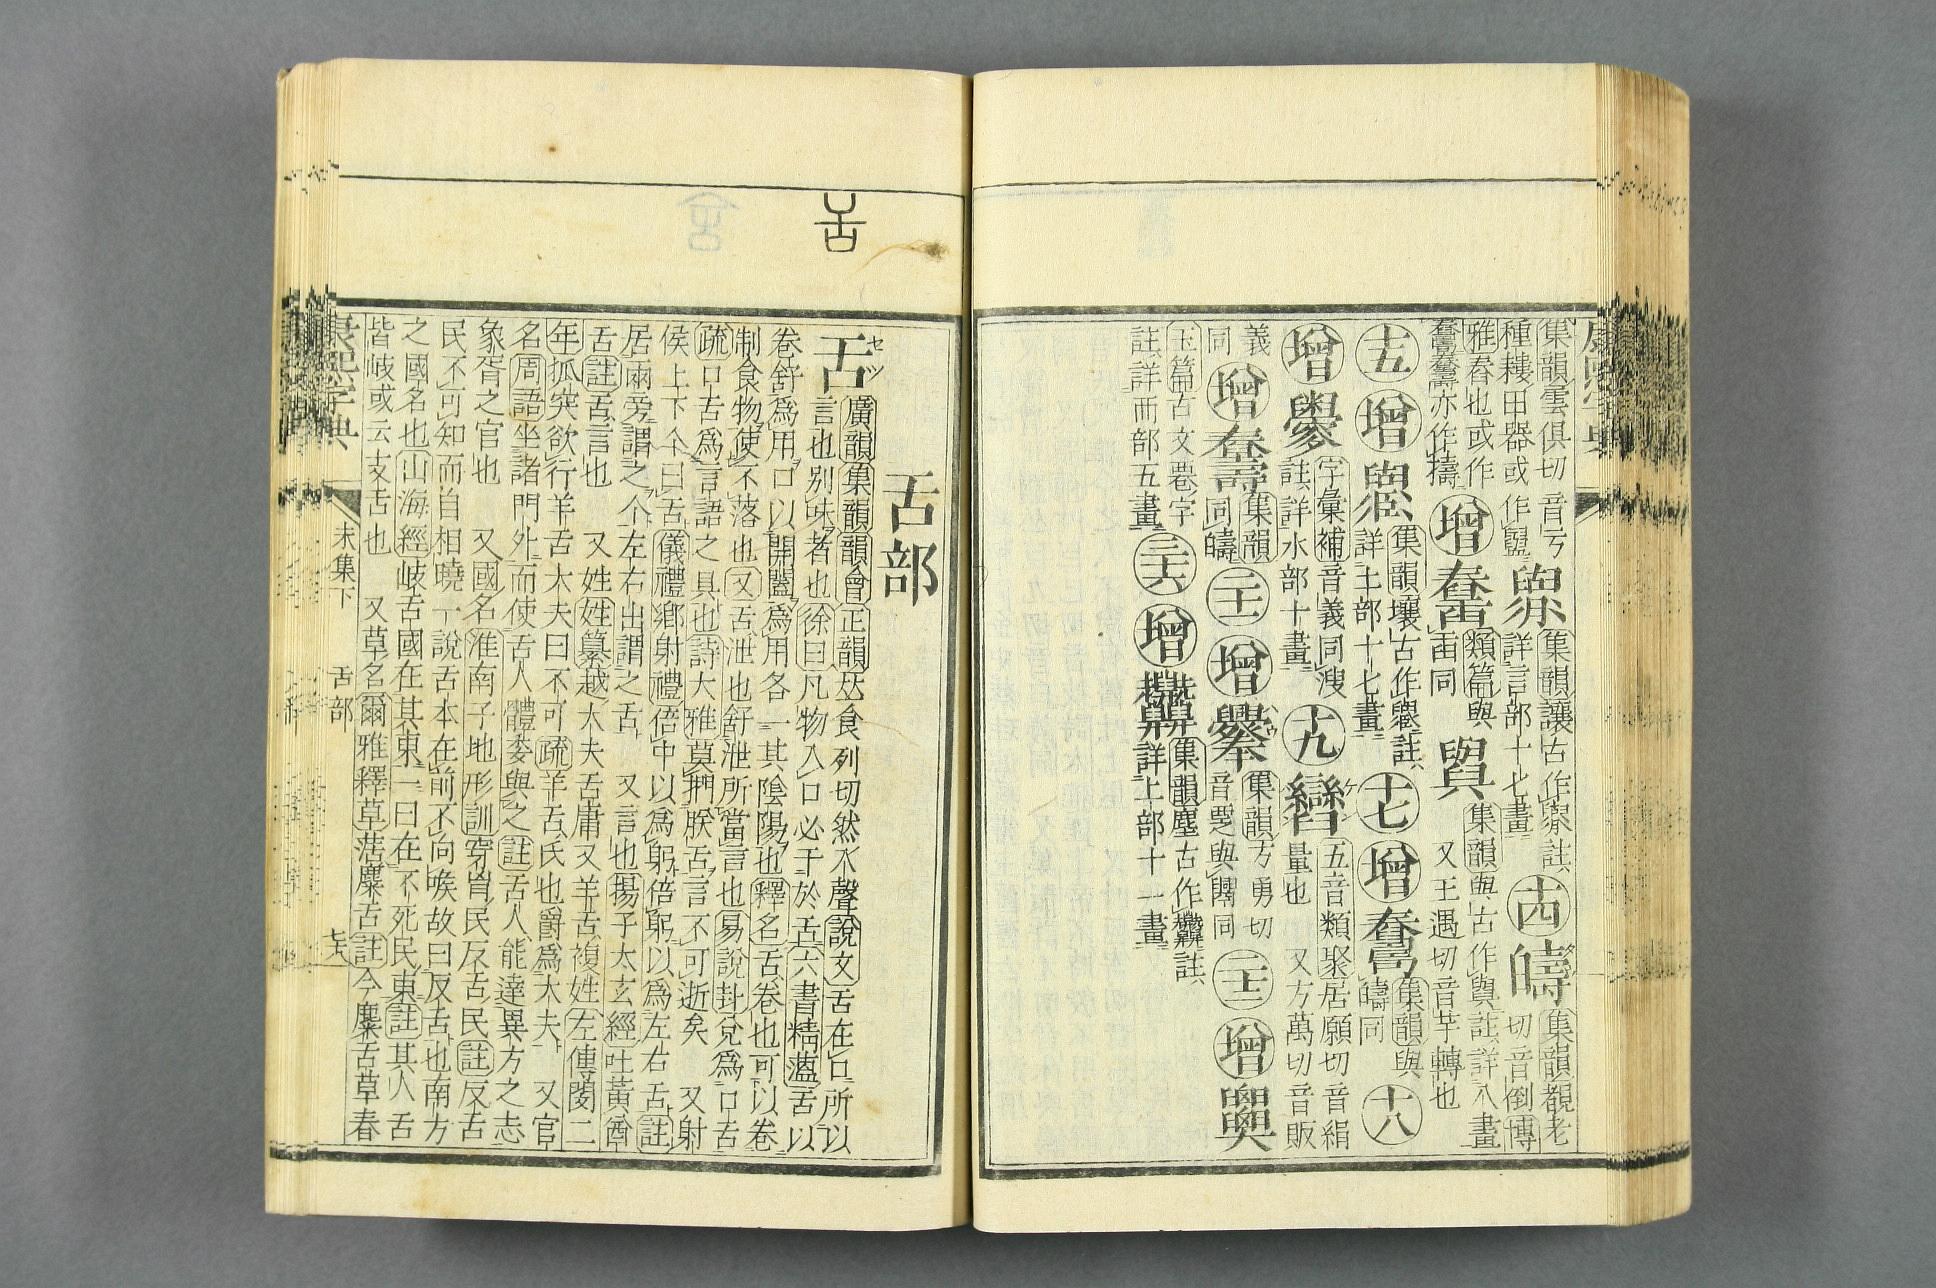 集韻雲俱切音亏
種耬田器或作
雅舂也或作
亦作擣
增
畬同
集韻讓古作註
詳言部十七畫
類篇與
集韻與古作與註詳八畫
又王遇切音芋轉也
古
集韻覩老
切音倒博
士
增
集韻壤古作註
詳土部十七畫
七
增
集韻與
擣同
十八
增
字彙補音義同溲
註詳水部十畫
九
五音類聚居願切音絹
量也 又方萬切音販
義
同
增
集韻
同
二十
增
集韻方勇切
音覂與同
二十一
增
玉篇古文䙴字
註詳襾部五畫
二十六
增
集韻塵古作註
詳土部十一畫
舌
舌部
舌
セツ
廣韻集韻韻會正韻𠀤食列切然入聲說文舌在口所以
言也別味者也徐曰凡物入口必干於舌六書精薀舌以
卷舒爲用口以開闔爲用各一其陰陽也釋名舌卷也可以卷
制食物使不落也又舌泄也舒泄所當言也易說卦兌爲口舌
疏口舌爲言語之具也詩大雅莫捫朕舌言不可逝矣 又射
侯上下个曰舌儀禮鄉射禮倍中以爲躬倍躬以爲左右舌註
居兩旁謂之个左右出謂之舌 又言也揚子太玄經吐黃酋
舌註舌言也 又姓姓纂越大夫舌庸又羊舌複姓左傳閔二
年狐突欲行羊舌大夫曰不可疏羊舌氏也爵爲大夫 又官
名周語坐諸門外而使舌人體委與之註舌人能達異方之志
象胥之官也 又國名淮南子地形訓穿胷民反舌民註反舌
民不可知而自相曉一說舌本在前不向喉故曰反舌也南方
之國名也山海經岐舌國在其東一曰在不死民東註其人舌
皆岐或云支舌也 又草名爾雅釋草菤麋舌註今麋舌草春
康熙字典
未集下
舌部
七六